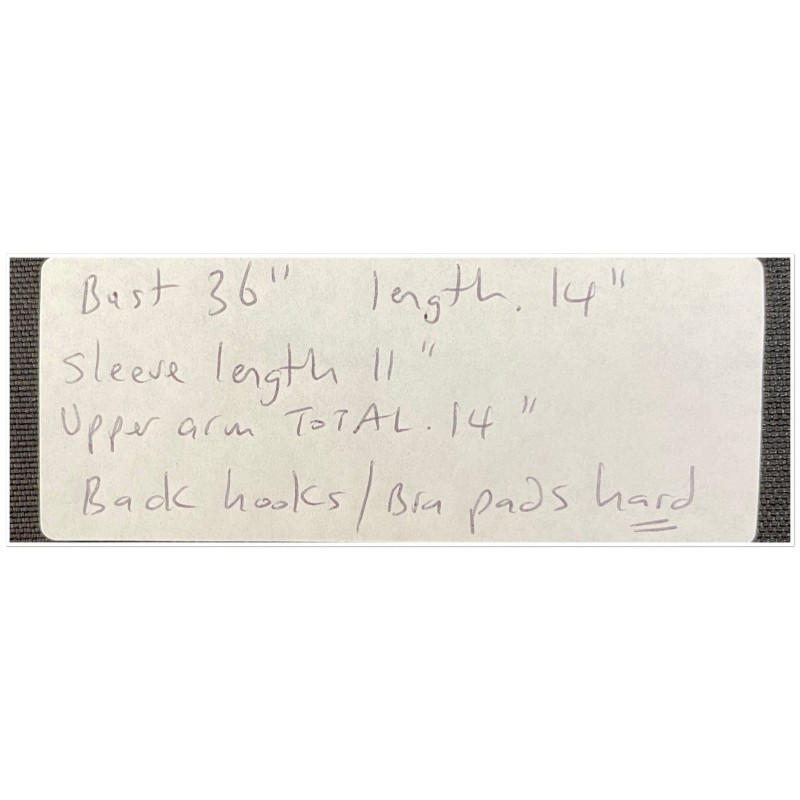 Bust 36" length. 14"
Sleeve length 11"
Upper arm TOTAL. 14"
Back hooks/Bra pads hard